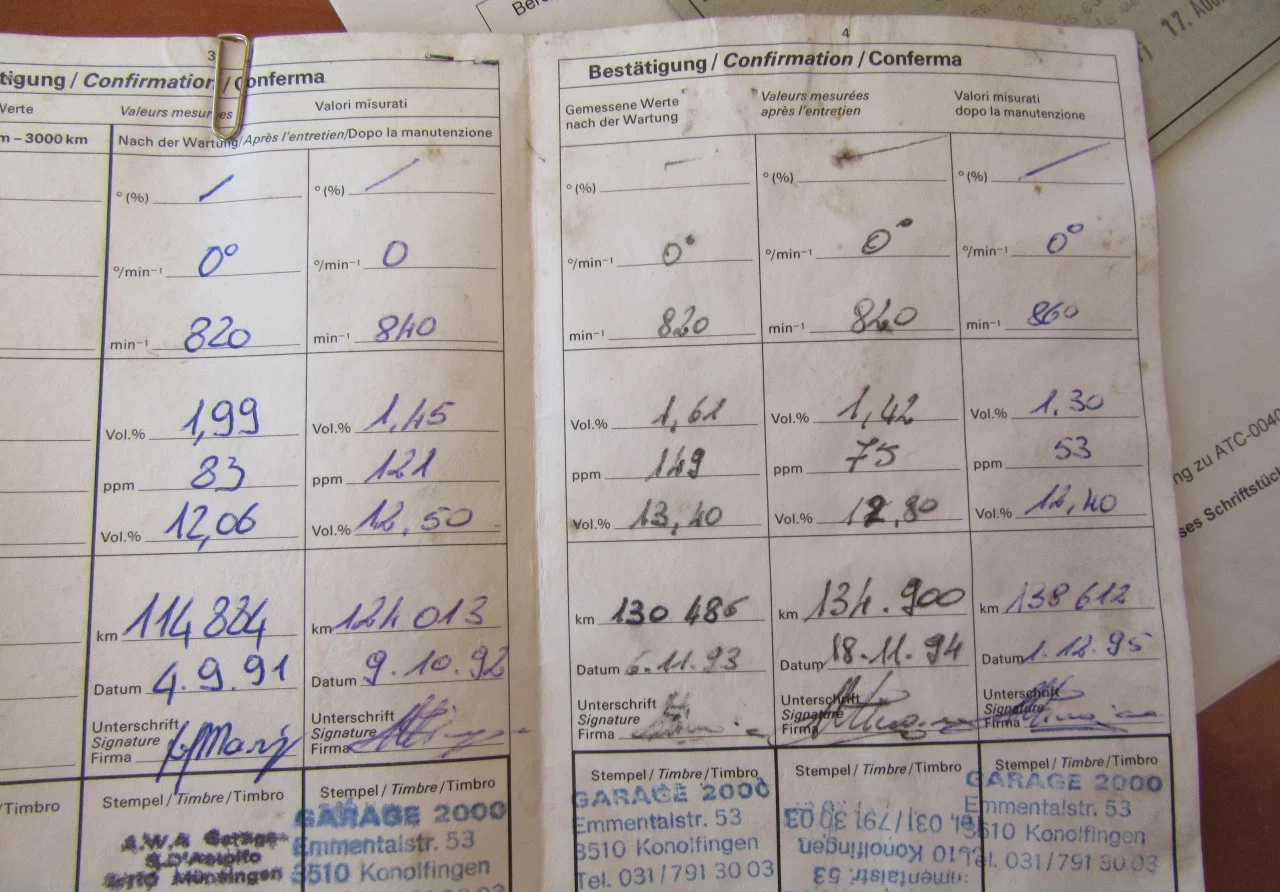 3
tigung / Confirmation / Conferma
Werte Valeurs mesurées Valori misurati
m – 3000 km Nach der Wartung/Après l'entretien/Dopo la manutenzione
° (%) ° (%)
°/min⁻¹ 0° °/min⁻¹ 0
min⁻¹ 820 min⁻¹ 840
Vol.% 1,99 Vol.% 1,45
ppm 83 ppm 121
Vol.% 12,06 Vol.% 12,50
km 114 884 km 124 013
Datum 4.9.91 Datum 9.10.92
Unterschrift Unterschrift
Signature Signature
Firma Firma
/Timbro Stempel / Timbre / Timbro Stempel / Timbre / Timbro
A.W.A Garage GARAGE 2000
Emmentalstr. 53
Münsingen 3510 Konolfingen
4
Bestätigung / Confirmation / Conferma
Gemessene Werte Valeurs mesurées Valori misurati
nach der Wartung après l'entretien dopo la manutenzione
° (%) ° (%) ° (%)
°/min⁻¹ 0° °/min⁻¹ 0° °/min⁻¹ 0°
min⁻¹ 820 min⁻¹ 840 min⁻¹ 860
Vol.% 1,61 Vol.% 1,42 Vol.% 1.30
ppm 149 ppm 75 ppm 53
Vol.% 13,40 Vol.% 12,80 Vol.% 12,40
km 130 486 km 134.900 km 138 612
Datum 6.11.93 Datum 18.11.94 Datum 1.12.95
Unterschrift Unterschrift Unterschrift
Signature Signature Signature
Firma Firma Firma
Stempel / Timbre / Timbro Stempel / Timbre / Timbro Stempel / Timbre / Timbro
GARAGE 2000 GARAGE 2000
Emmentalstr. 53 Tel. 031/791 30 03 Emmentalstr. 53
3510 Konolfingen 3510 Konolfingen 3510 Konolfingen
Tel. 031/791 30 03 Emmentalstr. 53 Tel. 031/791 30 03
17. Aug.
ng zu ATC-0040
ses Schriftstück